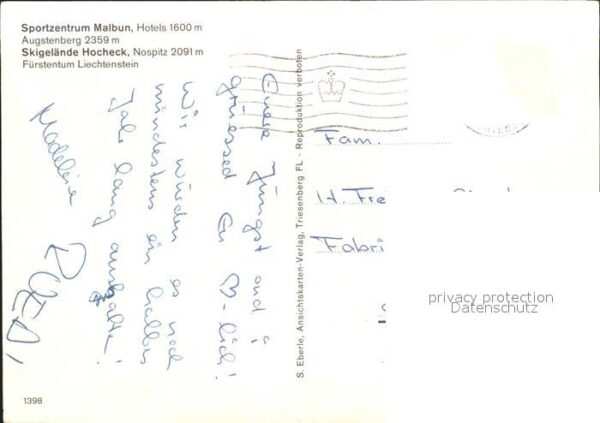 Sportzentrum Malbun, Hotels 1600 m
Augstenberg 2359 m
Skigelände Hocheck, Nospitz 2091 m
Fürstentum Liechtenstein
Jüngst and i
grüessed Eu ♡-lich!
Wir würden es noch
mindestens ein halbes
Jahr lang aushalte!
Madeleine
S. Eberle, Ansichtskarten-Verlag, Triesenberg FL - Reproduktion verboten
Fam.
H. Fre
Fabri
privacy protection
Datenschutz
1398